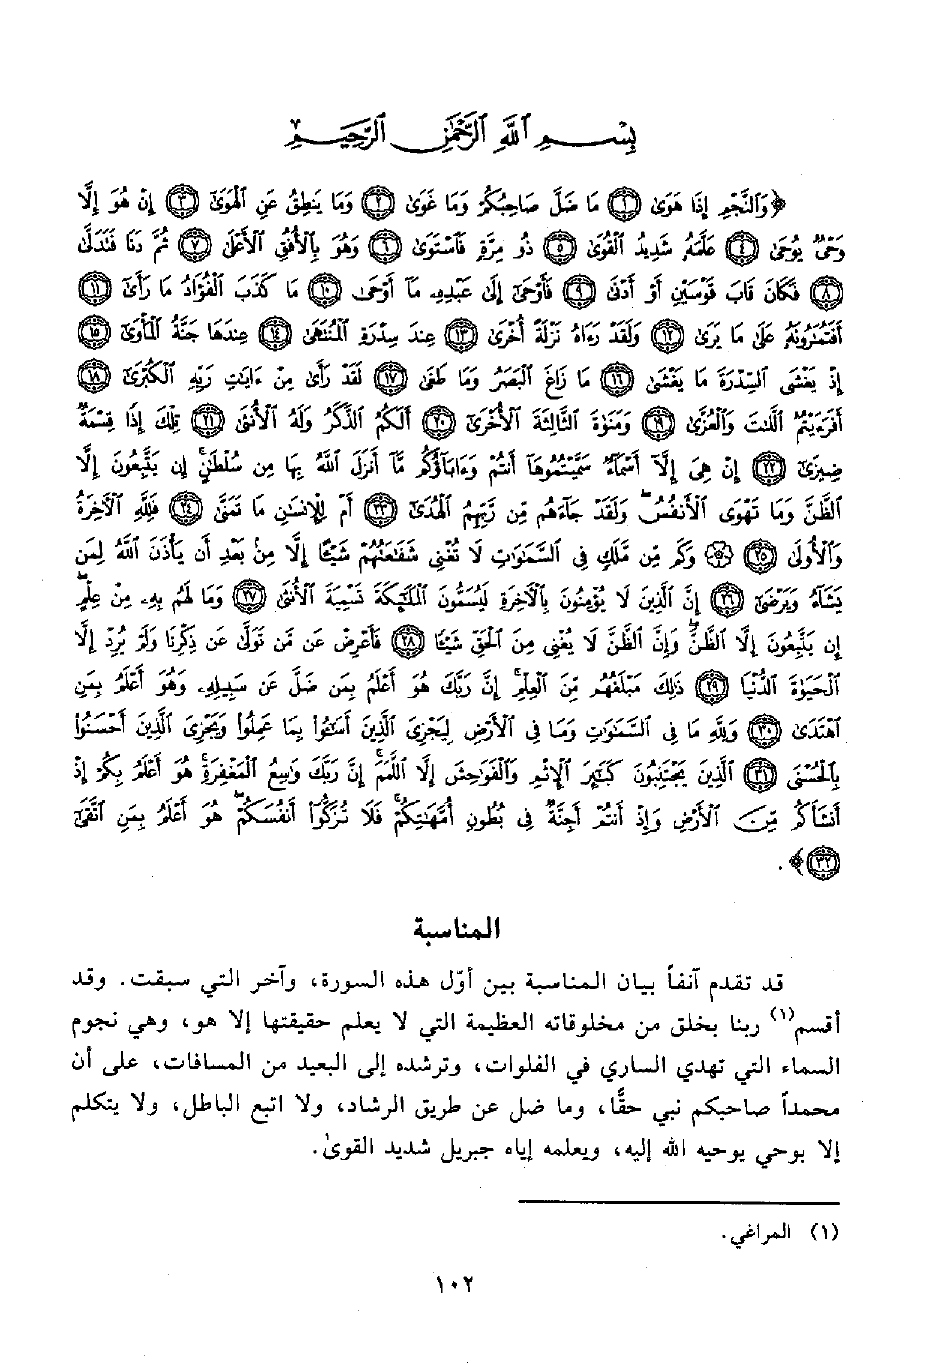 بِسْمِ اللَّهِ الرَّحْمَٰنِ الرَّحِيمِ
﴿وَٱلنَّجْمِ إِذَا هَوَىٰ ﴿١﴾ مَا ضَلَّ صَاحِبُكُمْ وَمَا غَوَىٰ ﴿٢﴾ وَمَا يَنطِقُ عَنِ ٱلْهَوَىٰٓ ﴿٣﴾ إِنْ هُوَ إِلَّا
وَحْىٌ يُوحَىٰ ﴿٤﴾ عَلَّمَهُۥ شَدِيدُ ٱلْقُوَىٰ ﴿٥﴾ ذُو مِرَّةٍ فَٱسْتَوَىٰ ﴿٦﴾ وَهُوَ بِٱلْأُفُقِ ٱلْأَعْلَىٰ ﴿٧﴾ ثُمَّ دَنَا فَتَدَلَّىٰ
﴿٨﴾ فَكَانَ قَابَ قَوْسَيْنِ أَوْ أَدْنَىٰ ﴿٩﴾ فَأَوْحَىٰٓ إِلَىٰ عَبْدِهِۦ مَآ أَوْحَىٰ ﴿١٠﴾ مَا كَذَبَ ٱلْفُؤَادُ مَا رَأَىٰٓ ﴿١١﴾
أَفَتُمَٰرُونَهُۥ عَلَىٰ مَا يَرَىٰ ﴿١٢﴾ وَلَقَدْ رَءَاهُ نَزْلَةً أُخْرَىٰ ﴿١٣﴾ عِندَ سِدْرَةِ ٱلْمُنتَهَىٰ ﴿١٤﴾ عِندَهَا جَنَّةُ ٱلْمَأْوَىٰٓ ﴿١٥﴾
إِذْ يَغْشَى ٱلسِّدْرَةَ مَا يَغْشَىٰ ﴿١٦﴾ مَا زَاغَ ٱلْبَصَرُ وَمَا طَغَىٰ ﴿١٧﴾ لَقَدْ رَأَىٰ مِنْ ءَايَٰتِ رَبِّهِ ٱلْكُبْرَىٰٓ ﴿١٨﴾
أَفَرَءَيْتُمُ ٱللَّٰتَ وَٱلْعُزَّىٰ ﴿١٩﴾ وَمَنَوٰةَ ٱلثَّالِثَةَ ٱلْأُخْرَىٰٓ ﴿٢٠﴾ أَلَكُمُ ٱلذَّكَرُ وَلَهُ ٱلْأُنثَىٰ ﴿٢١﴾ تِلْكَ إِذًا قِسْمَةٌ
ضِيزَىٰٓ ﴿٢٢﴾ إِنْ هِىَ إِلَّآ أَسْمَآءٌ سَمَّيْتُمُوهَآ أَنتُمْ وَءَابَآؤُكُم مَّآ أَنزَلَ ٱللَّهُ بِهَا مِن سُلْطَٰنٍ ۚ إِن يَتَّبِعُونَ إِلَّا
ٱلظَّنَّ وَمَا تَهْوَى ٱلْأَنفُسُ ۖ وَلَقَدْ جَآءَهُم مِّن رَّبِّهِمُ ٱلْهُدَىٰٓ ﴿٢٣﴾ أَمْ لِلْإِنسَٰنِ مَا تَمَنَّىٰ ﴿٢٤﴾ فَلِلَّهِ ٱلْءَاخِرَةُ
وَٱلْأُولَىٰ ﴿٢٥﴾ ۞ وَكَم مِّن مَّلَكٍ فِى ٱلسَّمَٰوَٰتِ لَا تُغْنِى شَفَٰعَتُهُمْ شَيْـًٔا إِلَّا مِنۢ بَعْدِ أَن يَأْذَنَ ٱللَّهُ لِمَن
يَشَآءُ وَيَرْضَىٰٓ ﴿٢٦﴾ إِنَّ ٱلَّذِينَ لَا يُؤْمِنُونَ بِٱلْءَاخِرَةِ لَيُسَمُّونَ ٱلْمَلَٰٓئِكَةَ تَسْمِيَةَ ٱلْأُنثَىٰ ﴿٢٧﴾ وَمَا لَهُم بِهِۦ مِنْ عِلْمٍ ۖ
إِن يَتَّبِعُونَ إِلَّا ٱلظَّنَّ ۖ وَإِنَّ ٱلظَّنَّ لَا يُغْنِى مِنَ ٱلْحَقِّ شَيْـًٔا ﴿٢٨﴾ فَأَعْرِضْ عَن مَّن تَوَلَّىٰ عَن ذِكْرِنَا وَلَمْ يُرِدْ إِلَّا
ٱلْحَيَوٰةَ ٱلدُّنْيَا ﴿٢٩﴾ ذَٰلِكَ مَبْلَغُهُم مِّنَ ٱلْعِلْمِ ۚ إِنَّ رَبَّكَ هُوَ أَعْلَمُ بِمَن ضَلَّ عَن سَبِيلِهِۦ وَهُوَ أَعْلَمُ بِمَنِ
ٱهْتَدَىٰ ﴿٣٠﴾ وَلِلَّهِ مَا فِى ٱلسَّمَٰوَٰتِ وَمَا فِى ٱلْأَرْضِ لِيَجْزِىَ ٱلَّذِينَ أَسَٰٓـُٔوا۟ بِمَا عَمِلُوا۟ وَيَجْزِىَ ٱلَّذِينَ أَحْسَنُوا۟
بِٱلْحُسْنَى ﴿٣١﴾ ٱلَّذِينَ يَجْتَنِبُونَ كَبَٰٓئِرَ ٱلْإِثْمِ وَٱلْفَوَٰحِشَ إِلَّا ٱللَّمَمَ ۚ إِنَّ رَبَّكَ وَٰسِعُ ٱلْمَغْفِرَةِ ۚ هُوَ أَعْلَمُ بِكُمْ إِذْ
أَنشَأَكُم مِّنَ ٱلْأَرْضِ وَإِذْ أَنتُمْ أَجِنَّةٌ فِى بُطُونِ أُمَّهَٰتِكُمْ ۖ فَلَا تُزَكُّوٓا۟ أَنفُسَكُمْ ۖ هُوَ أَعْلَمُ بِمَنِ ٱتَّقَىٰٓ
﴿٣٢﴾﴾.
المناسبة
قد تقدم آنفاً بيان المناسبة بين أوّل هذه السورة، وآخر التي سبقت. وقد
أقسم(١) ربنا بخلق من مخلوقاته العظيمة التي لا يعلم حقيقتها إلا هو، وهي نجوم
السماء التي تهدي الساري في الفلوات، وترشده إلى البعيد من المسافات، على أن
محمداً صاحبكم نبي حقًّا، وما ضل عن طريق الرشاد، ولا اتبع الباطل، ولا يتكلم
إلا بوحي يوحيه الله إليه، ويعلمه إياه جبريل شديد القوىٰ.
(١) المراغي.
١٠٢